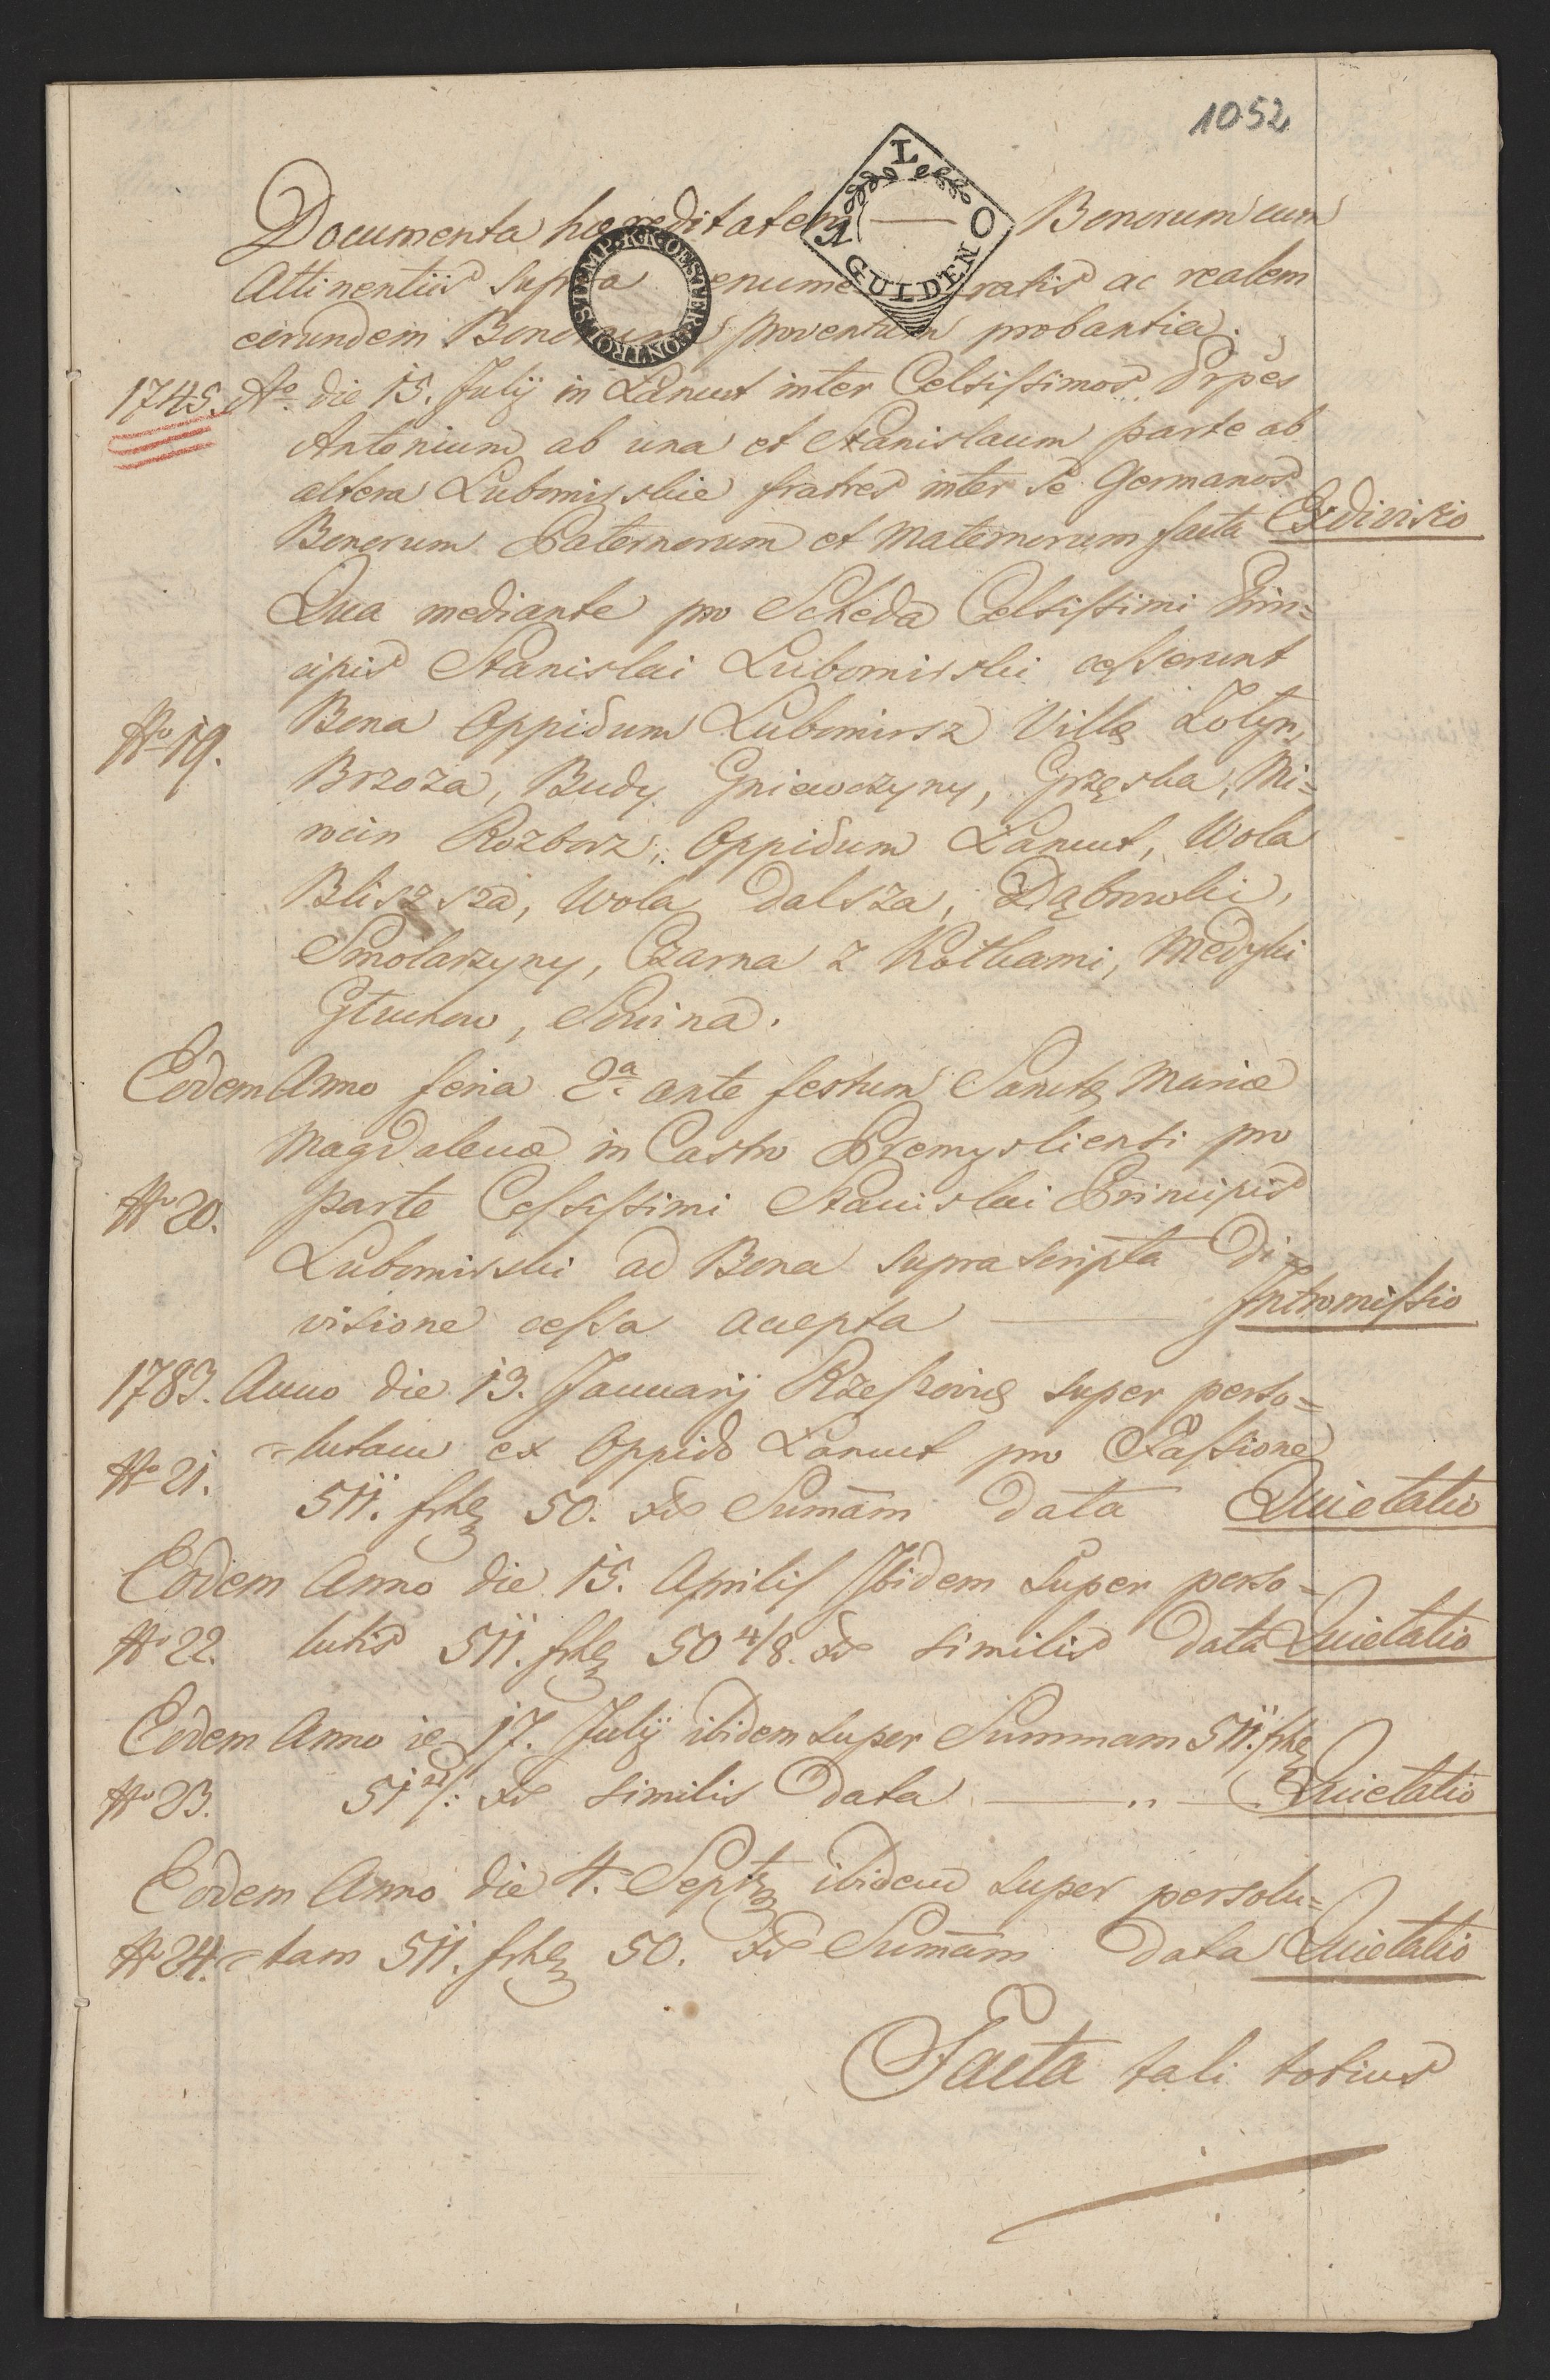 1052
Documenta haereditatem Bonorum cum
Attinentiis supra enumeratis ac realem
eorundem Bonorum proventum probantia.
L
GULDEN
STEMP. K.K. OESTER. CONTROL
1745. Ao. die 15. Julij in Łancut inter Celsissimos Prpes
Antonium ab una et Stanislaum parte ab
altera Lubomirskie fratres inter se Germanos
Bonorum Paternorum et Maternorum facta Exdivisio
Qua mediante pro Scheda Celsissimi Prin=
cipis Stanislai Lubomirski cesserunt
No 19. Bona Oppidum Lubomirsz Villę Zołyn,
Brzoza, Budy Gniewczyny, Grzęska, Mi=
rocin Rozborz, Oppidum Łancut, Wola
Bliszsza, Wola Dalsza, Dąbrowki,
Smolarzyny, Czarna z Kątkami, Medyki
Głuchow, Sonina.
Eodem Anno feria 2a. ante festum Sanctę Mariae
Magdalenae in Castro Premysliensi pro
No 20. parte Celsissimi Stanislai Principis
Lubomirski ad Bona supra scripta Di=
visione cessa accepta Intromissio
1783. Anno die 13. Januarij Rzeszovię super perso=
No 21. lutam ex Oppido Łancut pro Fassione
511. frhę 50. Xr Sumam data Quietatio
Eodem Anno die 15. Aprilis Ibidem super perso=
No 22. lutis 511. frhę 50 4/8. Xr similis data Quietatio
Eodem Anno ie 17. Julij ibidem super Summam 511. frhę
No 23. 51 Xr similis data — " — Quietatio
Eodem Anno die 4. Septbr ibidem super persolu=
No 24. tam 511. frhę 50. Xr Sumam data Quietatio
Facta tali totius